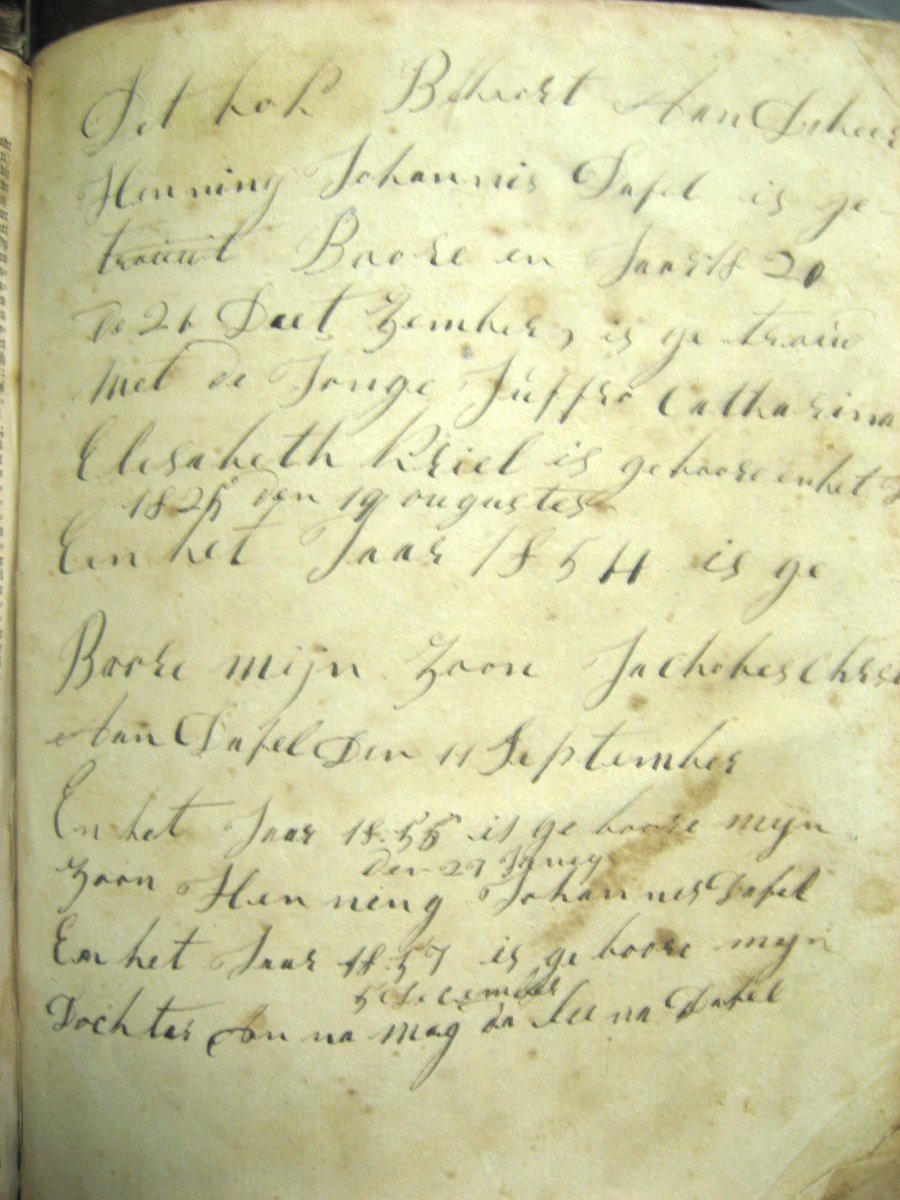 Det bok Behoort Aan Dheer
Henning Johannis Dafel is ge-
trouwt Boore en Jaar 18 20
De 26 Deet Zember, is ge trouw
Met de Jonge Juffro Catharina
Elesabeth Kriel is geboore enhet
1825 den 19 ougustes
En het Jaar 1854 is ge
Boore mijn Zoon Jachobes Chresi
Aan Dafel Den 11 September
En het Jaar 1855 is ge boore mijn
Den 27 Juney
Zoon Henning Johannes Dafel
En het Jaar 1857 is ge boore mijn
5 december
Dochter An na mag da lee na Dafel